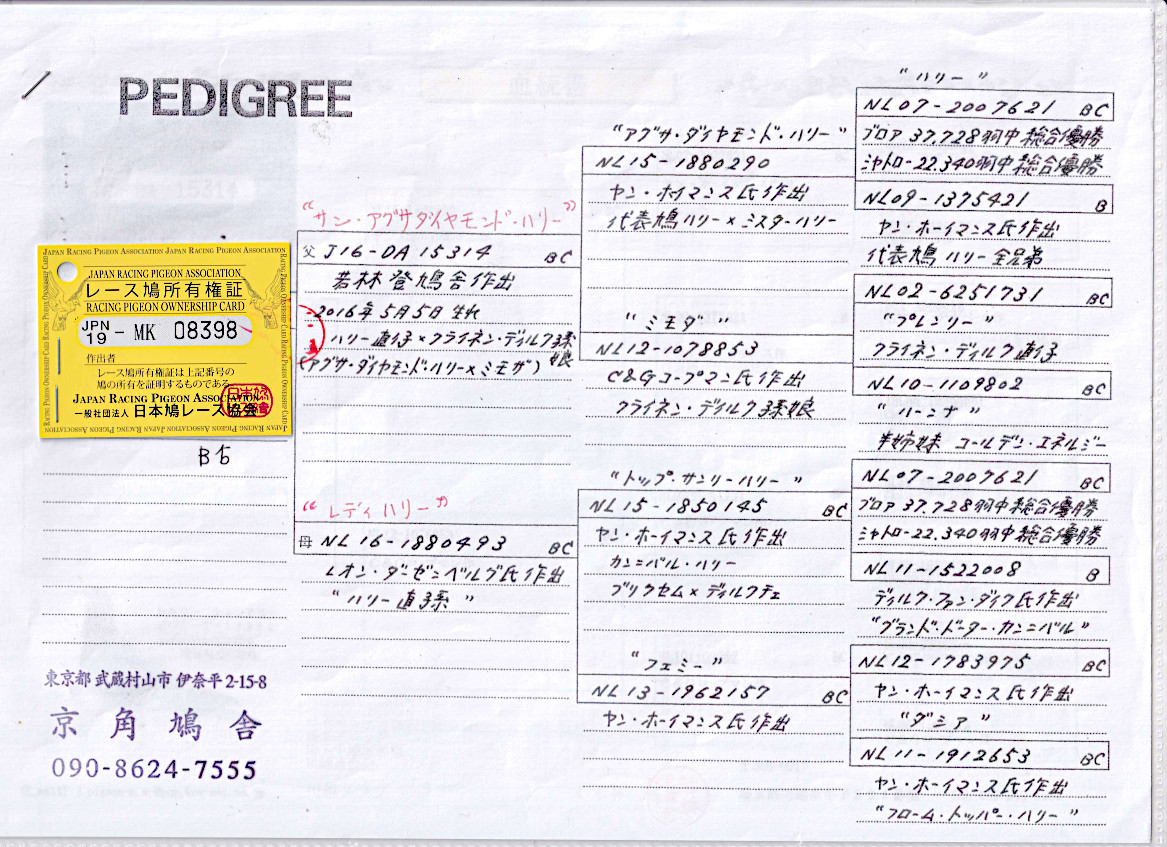 PEDIGREE
JAPAN RACING PIGEON ASSOCIATION JAPAN RACING PIGEON ASSOCIATION
JAPAN RACING PIGEON ASSOCIATION
レース鳩所有権証
RACING PIGEON OWNERSHIP CARD
JPN
19 - MK 08398
作出者
レース鳩所有権証は上記番号の
鳩の所有を証明するものである。
JAPAN RACING PIGEON ASSOCIATION
一般社団法人 日本鳩レース協会
B♂
東京都 武蔵村山市 伊奈平 2-15-8
京角鳩舎
090-8624-7555
"サン・アグサダイヤモンド・ハリー"
父 J16-DA 15314 BC
若林登鳩舎作出
2016年5月5日生れ
ハリー直仔×クライネン・ディルク孫娘
(アグサ・ダイヤモンド・ハリー×ミモザ)
"レディハリー"
母 NL16-1880493 BC
レオン・ダーゼンベルグ氏作出
"ハリー直孫"
"アグサ・ダイヤモンド・ハリー"
NL15-1880290
ヤン・ホイマンス氏作出
代表鳩ハリー×ミスターハリー
"ミモダ"
NL12-1078853
C&Gコープマン氏作出
クライネン・ディルク孫娘
"トップ・サンリーハリー"
NL15-1850145 BC
ヤン・ホーイマンス氏作出
カンニバル・ハリー
ブリクセム×ディルクチェ
"フェミー"
NL13-1962157 BC
ヤン・ホーイマンス氏作出
"ハリー"
NL07-2007621 BC
ブロア 37.728羽中総合優勝
シャトロー22.340羽中総合優勝
NL09-1375421 B
ヤン・ホーイマンス氏作出
代表鳩ハリー全兄弟
NL02-6251731 BC
"プレンリー"
クライネン・ディルク直仔
NL10-1109802 BC
"ハーンナ"
半姉妹 ゴールデン・エネルジー
NL07-2007621 BC
ブロア 37.728羽中総合優勝
シャトロー22.340羽中総合優勝
NL11-1522008 B
ディルク・ファン・ダイク氏作出
"グランド・ドーター・カンニバル"
NL12-1783975 BC
ヤン・ホーイマンス氏作出
"ダミア"
NL11-1912653 BC
ヤン・ホーイマンス氏作出
"フローム・トッパー・ハリー"